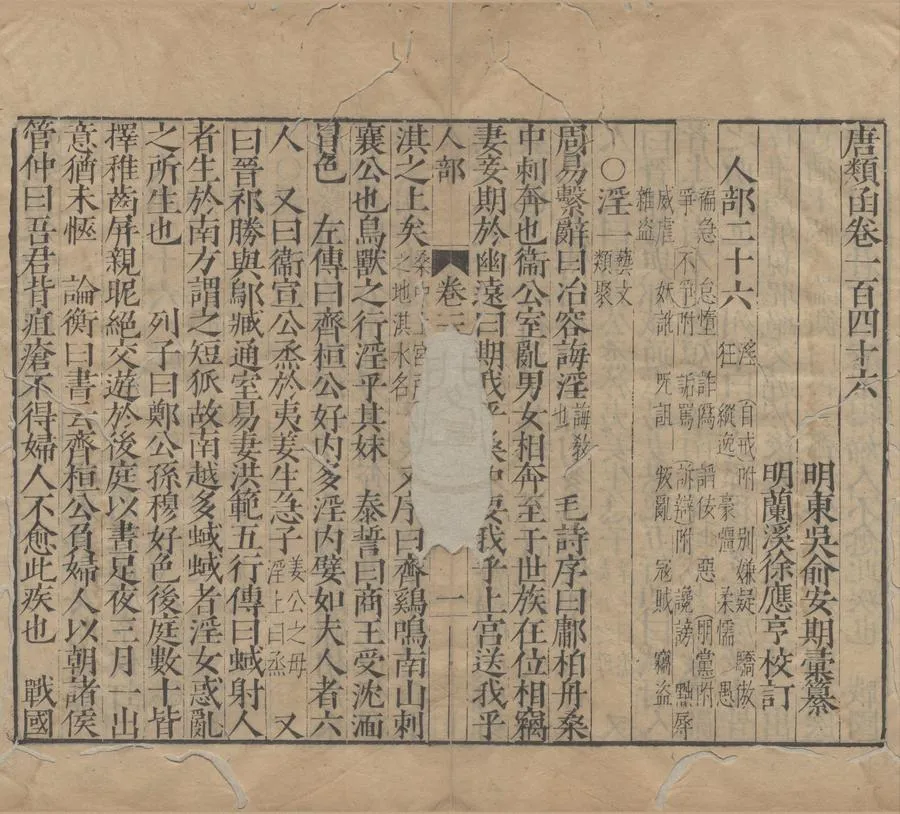 唐類函卷一百四十六
明東吳俞安期彙纂
明蘭溪徐應亨校訂
人部二十六
淫 自戒附 別嫌疑 驕傲
狂 縱逸 豪彊 柔懦 愚
褊急 怠惰 詐偽 諂佞 惡 朋黨附
爭 不爭附 詬罵 訴辯附 讒謗 黜辱
威虐 妖訛 咒詛 叛亂 寇賊 竊盜
雜盜
○淫一 藝文類聚
周易繫辭曰冶容誨淫 誨教也 毛詩序曰鄘柏舟桑
中刺奔也衞公室亂男女相奔至于世族在位相竊
妻妾期於幽遠曰期我乎桑中要我乎上宮送我乎
人部 卷 一
淇之上矣 桑中上宮 之地淇水名 又序曰齊鷄鳴南山刺
襄公也鳥獸之行淫乎其妹 泰誓曰商王受沈湎
冒色 左傳曰齊桓公好內多淫內嬖如夫人者六
人 又曰衞宣公烝於夷姜生急子 姜公之母淫上曰烝 又
曰晉祁勝與鄔臧通室易妻洪範五行傳曰蜮射人
者生於南方謂之短狐故南越多蜮蜮者淫女惑亂
之所生也 列子曰鄭公孫穆好色後庭數十皆
擇稚齒屏親昵絕交遊於後庭以晝足夜三月一出
意猶未愜 論衡曰書云齊桓公負婦人以朝諸侯
管仲曰吾君背疽瘡不得婦人不愈此疾也 戰國